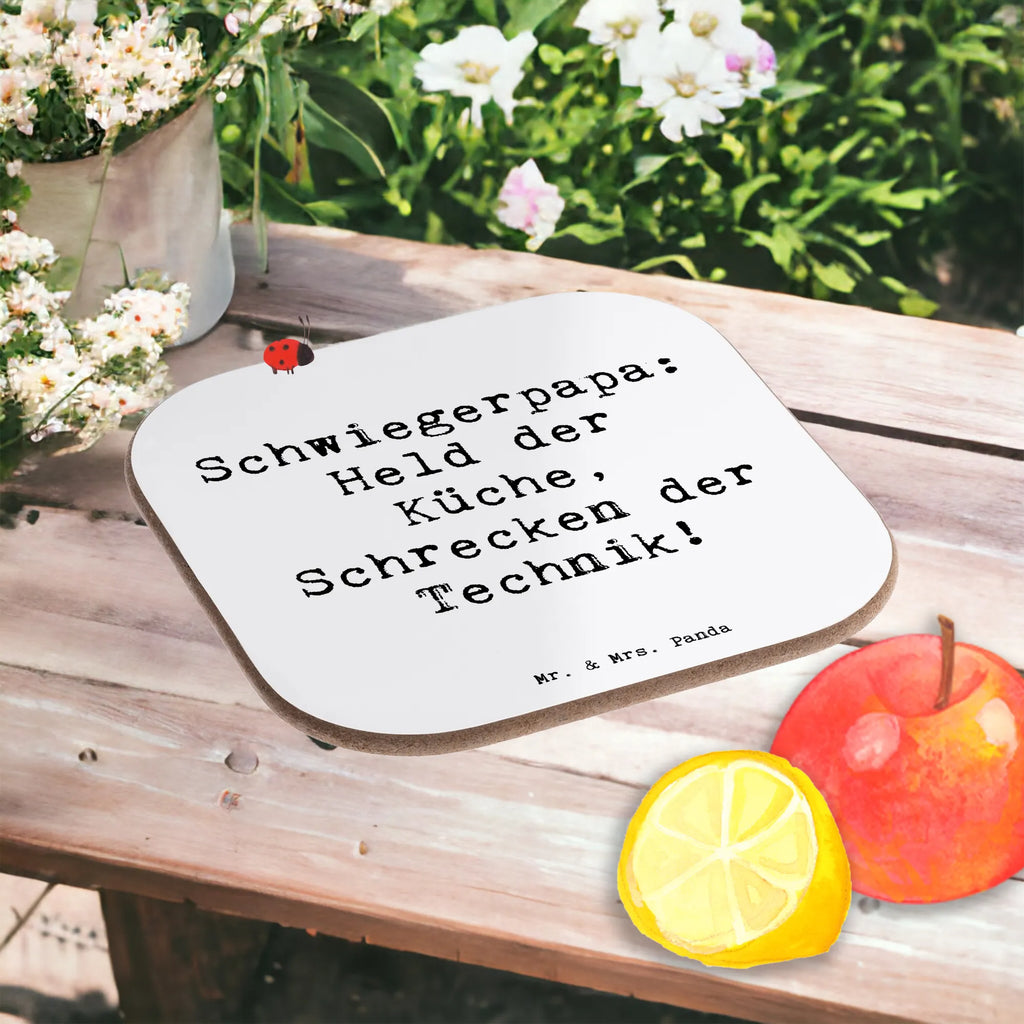 Schwiegerpapa:
Held der
Küche,
Schrecken der
Technik!
Mr. & Mrs. Panda